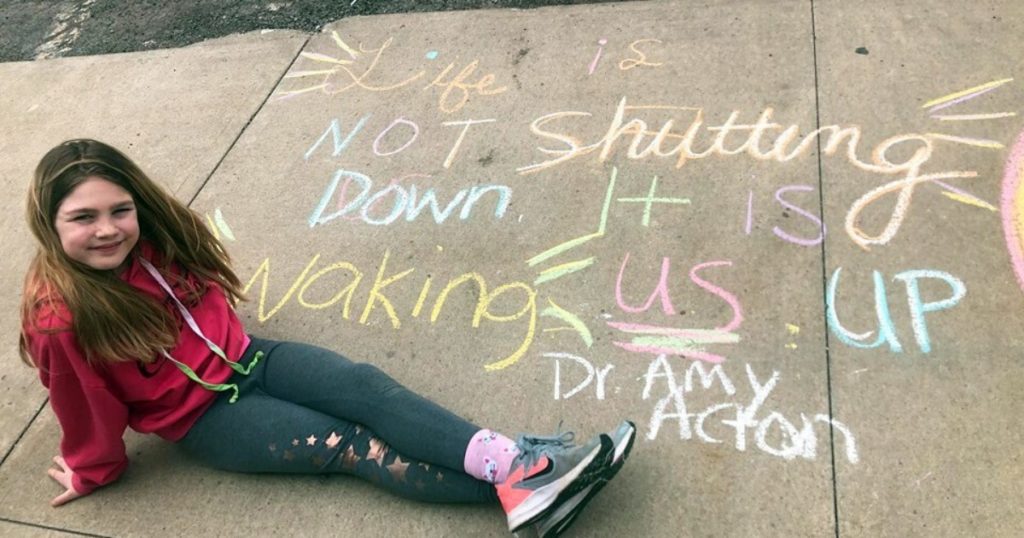 Life is
NOT Shutting
Down. It is
Waking us UP
Dr Amy
Acton